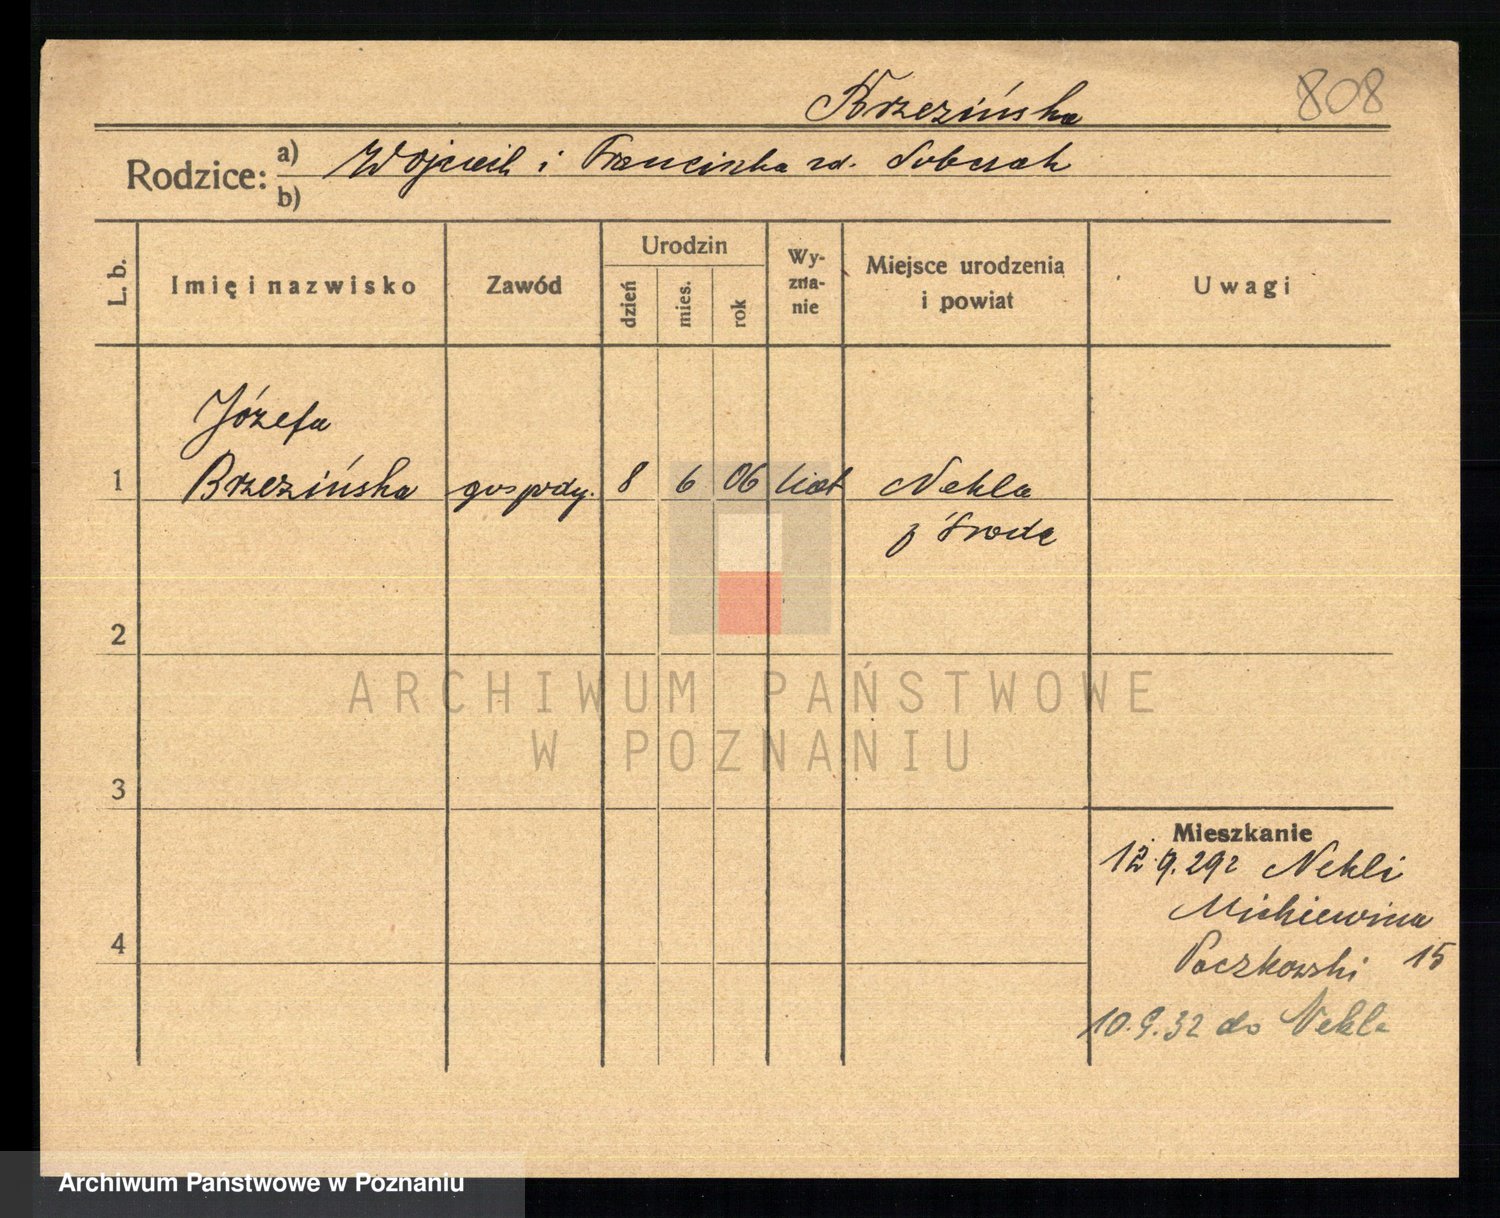 808
Brzezińska
Rodzice: a) Wojciech i Franciszka zd. Sobczak
b)
L. b.
Imię i nazwisko
Zawód
Urodzin
dzień
mies.
rok
Wy-
zna-
nie
Miejsce urodzenia
i powiat
Uwagi
Józefa
1 Brzezińska gospody. 8 6 06 kat Nekla
p Środa
2
3
4
Mieszkanie
12.9.29 z Nekli
Mickiewicza
Paczkowski 15
10.9.32 do Nekla
ARCHIWUM PAŃSTWOWE
W POZNANIU
Archiwum Państwowe w Poznaniu